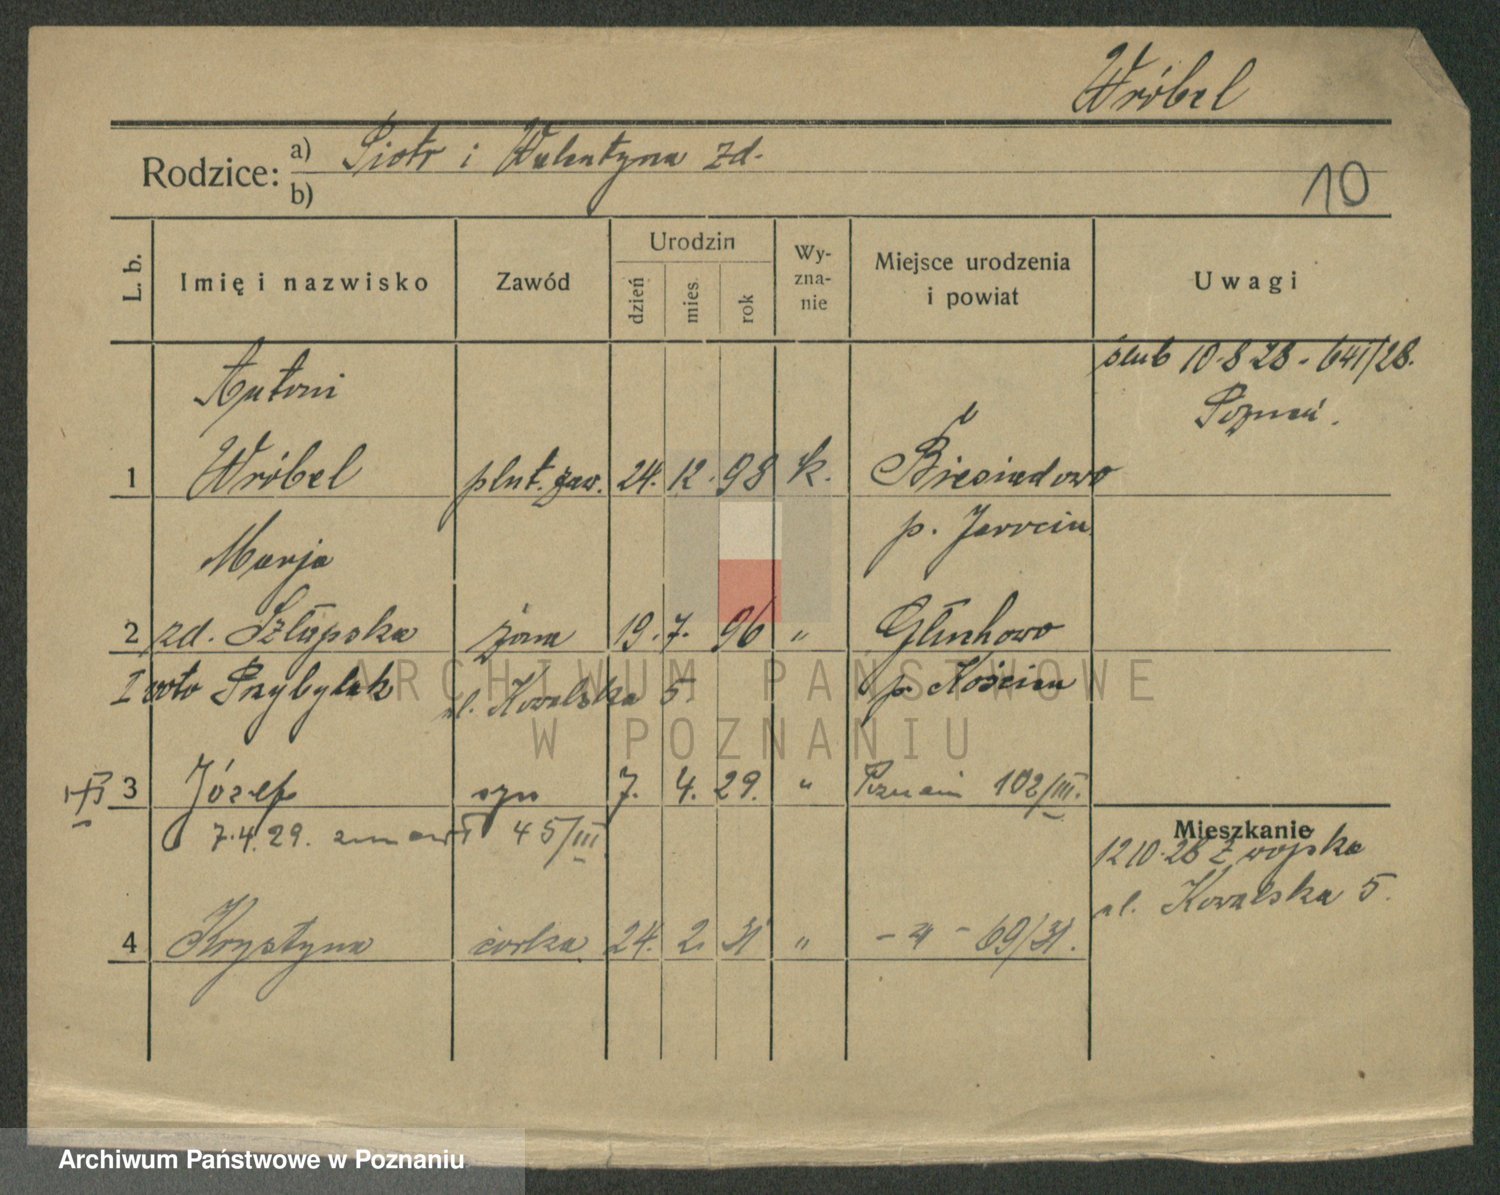 Wróbel
Rodzice: a) Piotr i Walentyna zd.
b)
10
L. b.
Imię i nazwisko
Zawód
Urodzin
dzień
mies.
rok
Wy-
zna-
nie
Miejsce urodzenia
i powiat
Uwagi
ślub 10.8.28 - 641/28.
Poznań.
Antoni
1 Wróbel plut. zaw. 24. 12. 98 k. Biesiadowo
p. Jarocin
Marja
2 zd. Szłapska żona 19. 7. 96 " Głuchowo
I voto Przybylak ul. Kowalska 5. p. Kościan
3 Józef syn 7. 4. 29. " Poznań 102/III.
7.4.29. zmarł 45/III
4 Krystyna córka 24. 2. 31 " - " - 69/31.
Mieszkanie
12 10.28 z wojska
ul. Kowalska 5.
ARCHIWUM PAŃSTWOWE
W POZNANIU
Archiwum Państwowe w Poznaniu